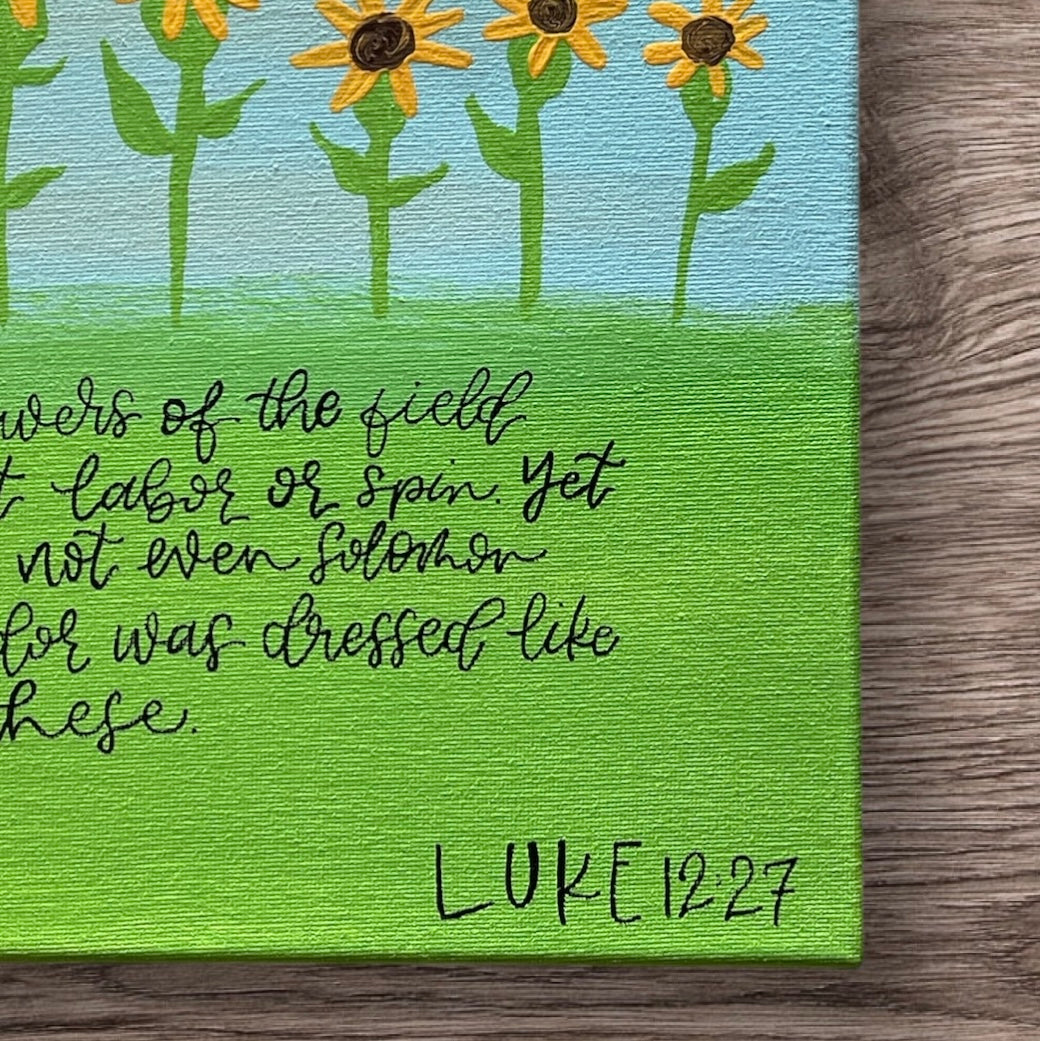 wers of the field
t labor or spin. Yet
not even Solomon
dor was dressed like
hese.
LUKE 12:27